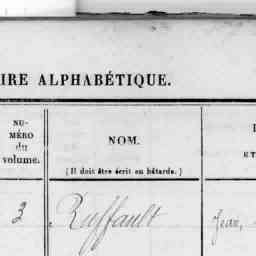 IRE ALPHABÉTIQUE.
NU-
MÉRO
du
volume.
NOM.
(Il doit être écrit en bâtarde.)
ET
3 Ruffault Jean,